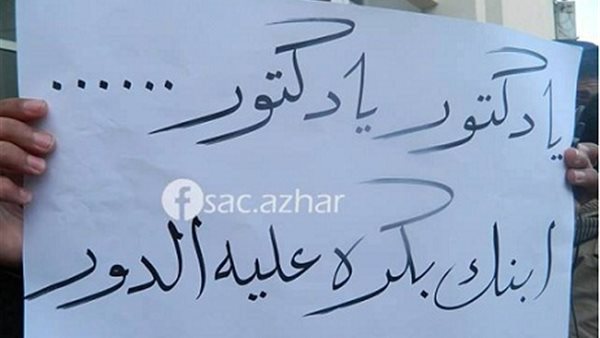 يا دكتور يا دكتور ......
f sac.azhar
ابنك بكره عليه الدور